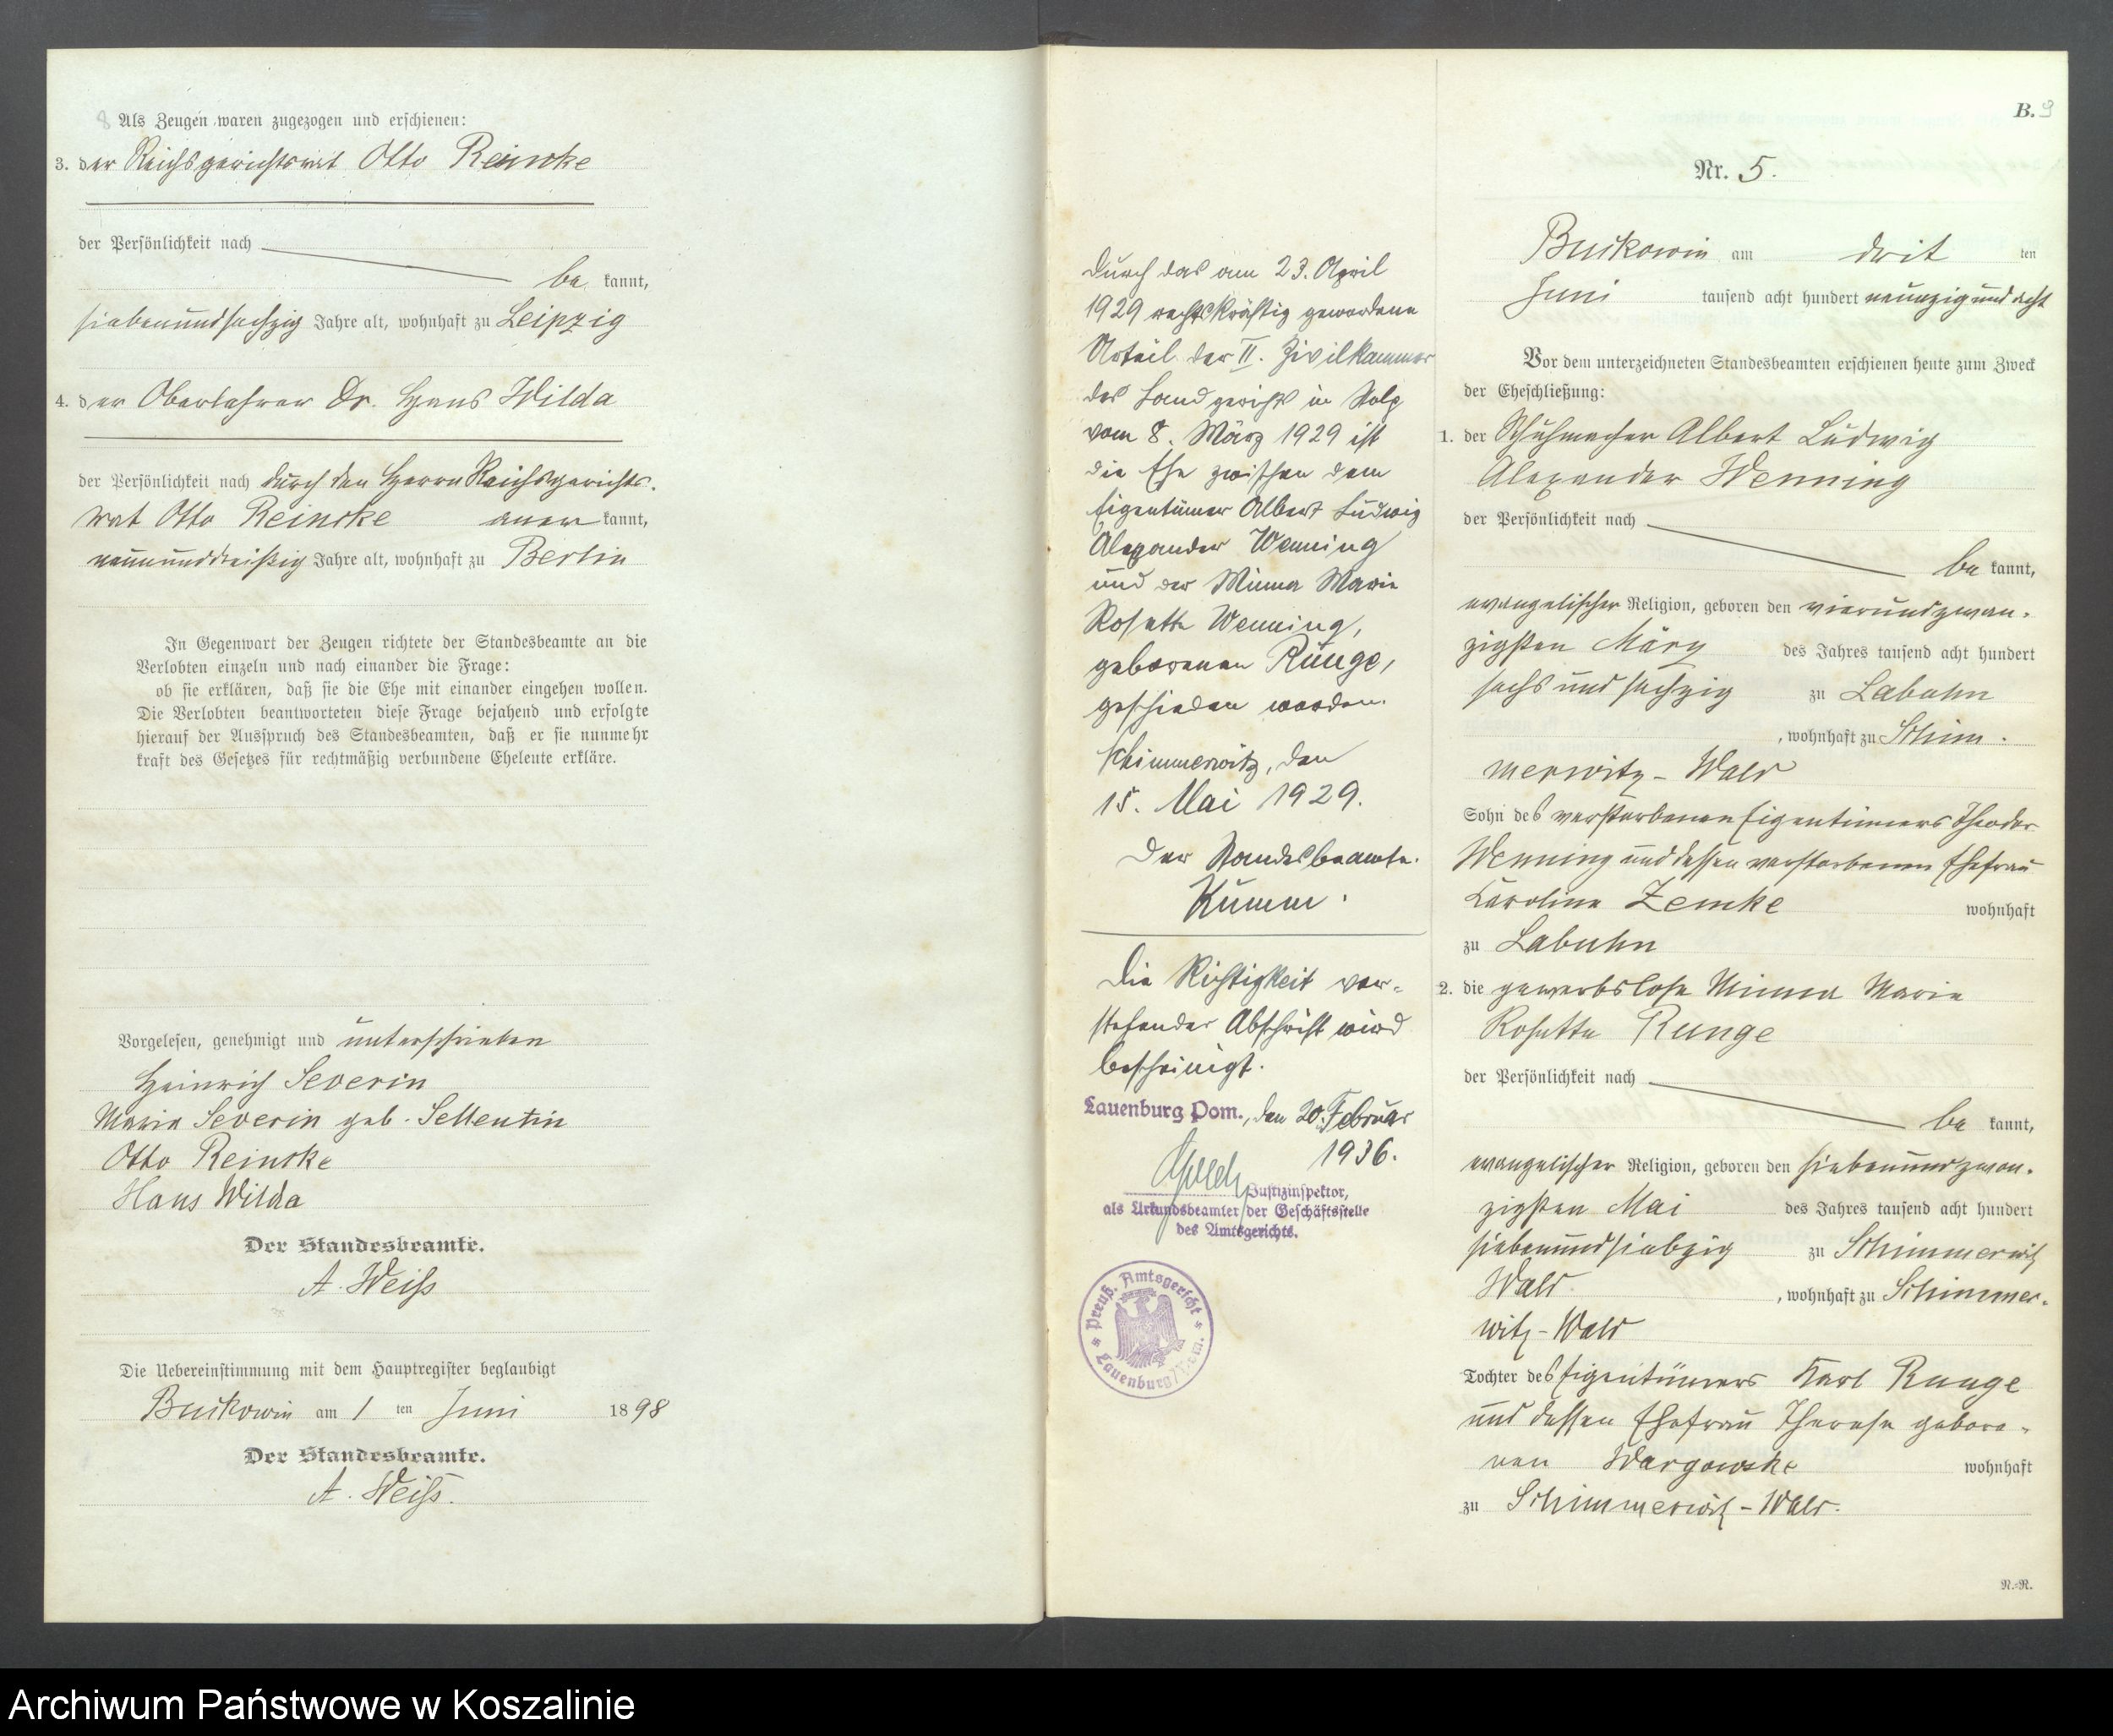 8 Als Zeugen waren zugezogen und erschienen:
3. der Reichsgerichtsrat Otto Reincke
der Persönlichkeit nach
be kannt,
siebenundsechzig Jahre alt, wohnhaft zu Leipzig
4. der Oberlehrer Dr. Hans Wilda
der Persönlichkeit nach durch den Herrn Reichsgerichts-
rat Otto Reincke aner kannt,
neununddreißig Jahre alt, wohnhaft zu Berlin
In Gegenwart der Zeugen richtete der Standesbeamte an die
Verlobten einzeln und nach einander die Frage:
ob sie erklären, daß sie die Ehe mit einander eingehen wollen.
Die Verlobten beantworteten diese Frage bejahend und erfolgte
hierauf der Ausspruch des Standesbeamten, daß er sie nunmehr
kraft des Gesetzes für rechtmäßig verbundene Eheleute erkläre.
Vorgelesen, genehmigt und unterschrieben
Heinrich Severin
Maria Severin geb. Sellentin
Otto Reincke
Hans Wilda
Der Standesbeamte.
A. Weiß
Die Uebereinstimmung mit dem Hauptregister beglaubigt
Buckowin am 1 ten Juni 1898
Der Standesbeamte.
A. Weiß.
Durch das am 23. April
1929 rechtskräftig gewordene
Urteil der II. Zivilkammer
des Landgerichts in Stolp
vom 8. März 1929 ist
die Ehe zwischen dem
Eigentümer Albert Ludwig
Alexander Wenning
und der Minna Marie
Rosette Wenning,
geborenen Runge,
geschieden worden.
Schimmerwitz, den
15. Mai 1929.
Der Standesbeamte.
Kumm.
Die Richtigkeit vor-
stehender Abschrift wird
bescheinigt.
Lauenburg Pom., den 20. Februar
1936.
Justizinspektor,
als Urkundsbeamter der Geschäftsstelle
des Amtsgerichts.
* Preuß. Amtsgericht * Lauenburg/Pom.
B. 9
Nr. 5.
Buckowin am drit ten
Juni tausend acht hundert neunzig und acht
Vor dem unterzeichneten Standesbeamten erschienen heute zum Zweck
der Eheschließung:
1. der Schuhmacher Albert Ludwig
Alexander Wenning
der Persönlichkeit nach
be kannt,
evangelischer Religion, geboren den vierundzwan-
zigsten März des Jahres tausend acht hundert
sechs und sechzig zu Labuhn
, wohnhaft zu Schim-
merwitz-Wald
Sohn des verstorbenen Eigentümers Theodor
Wenning und dessen verstorbenen Ehefrau
Karoline Zemke wohnhaft
zu Labuhn
2. die gewerbslose Minna Marie
Rosette Runge
der Persönlichkeit nach
be kannt,
evangelischer Religion, geboren den siebenundzwan-
zigsten Mai des Jahres tausend acht hundert
siebenundsiebzig zu Schimmerwitz
Wald , wohnhaft zu Schimmer-
witz-Wald
Tochter des Eigentümers Karl Runge
und dessen Ehefrau Therese gebore-
nen Wargowske wohnhaft
zu Schimmerwitz-Wald.
N.-R.
Archiwum Państwowe w Koszalinie